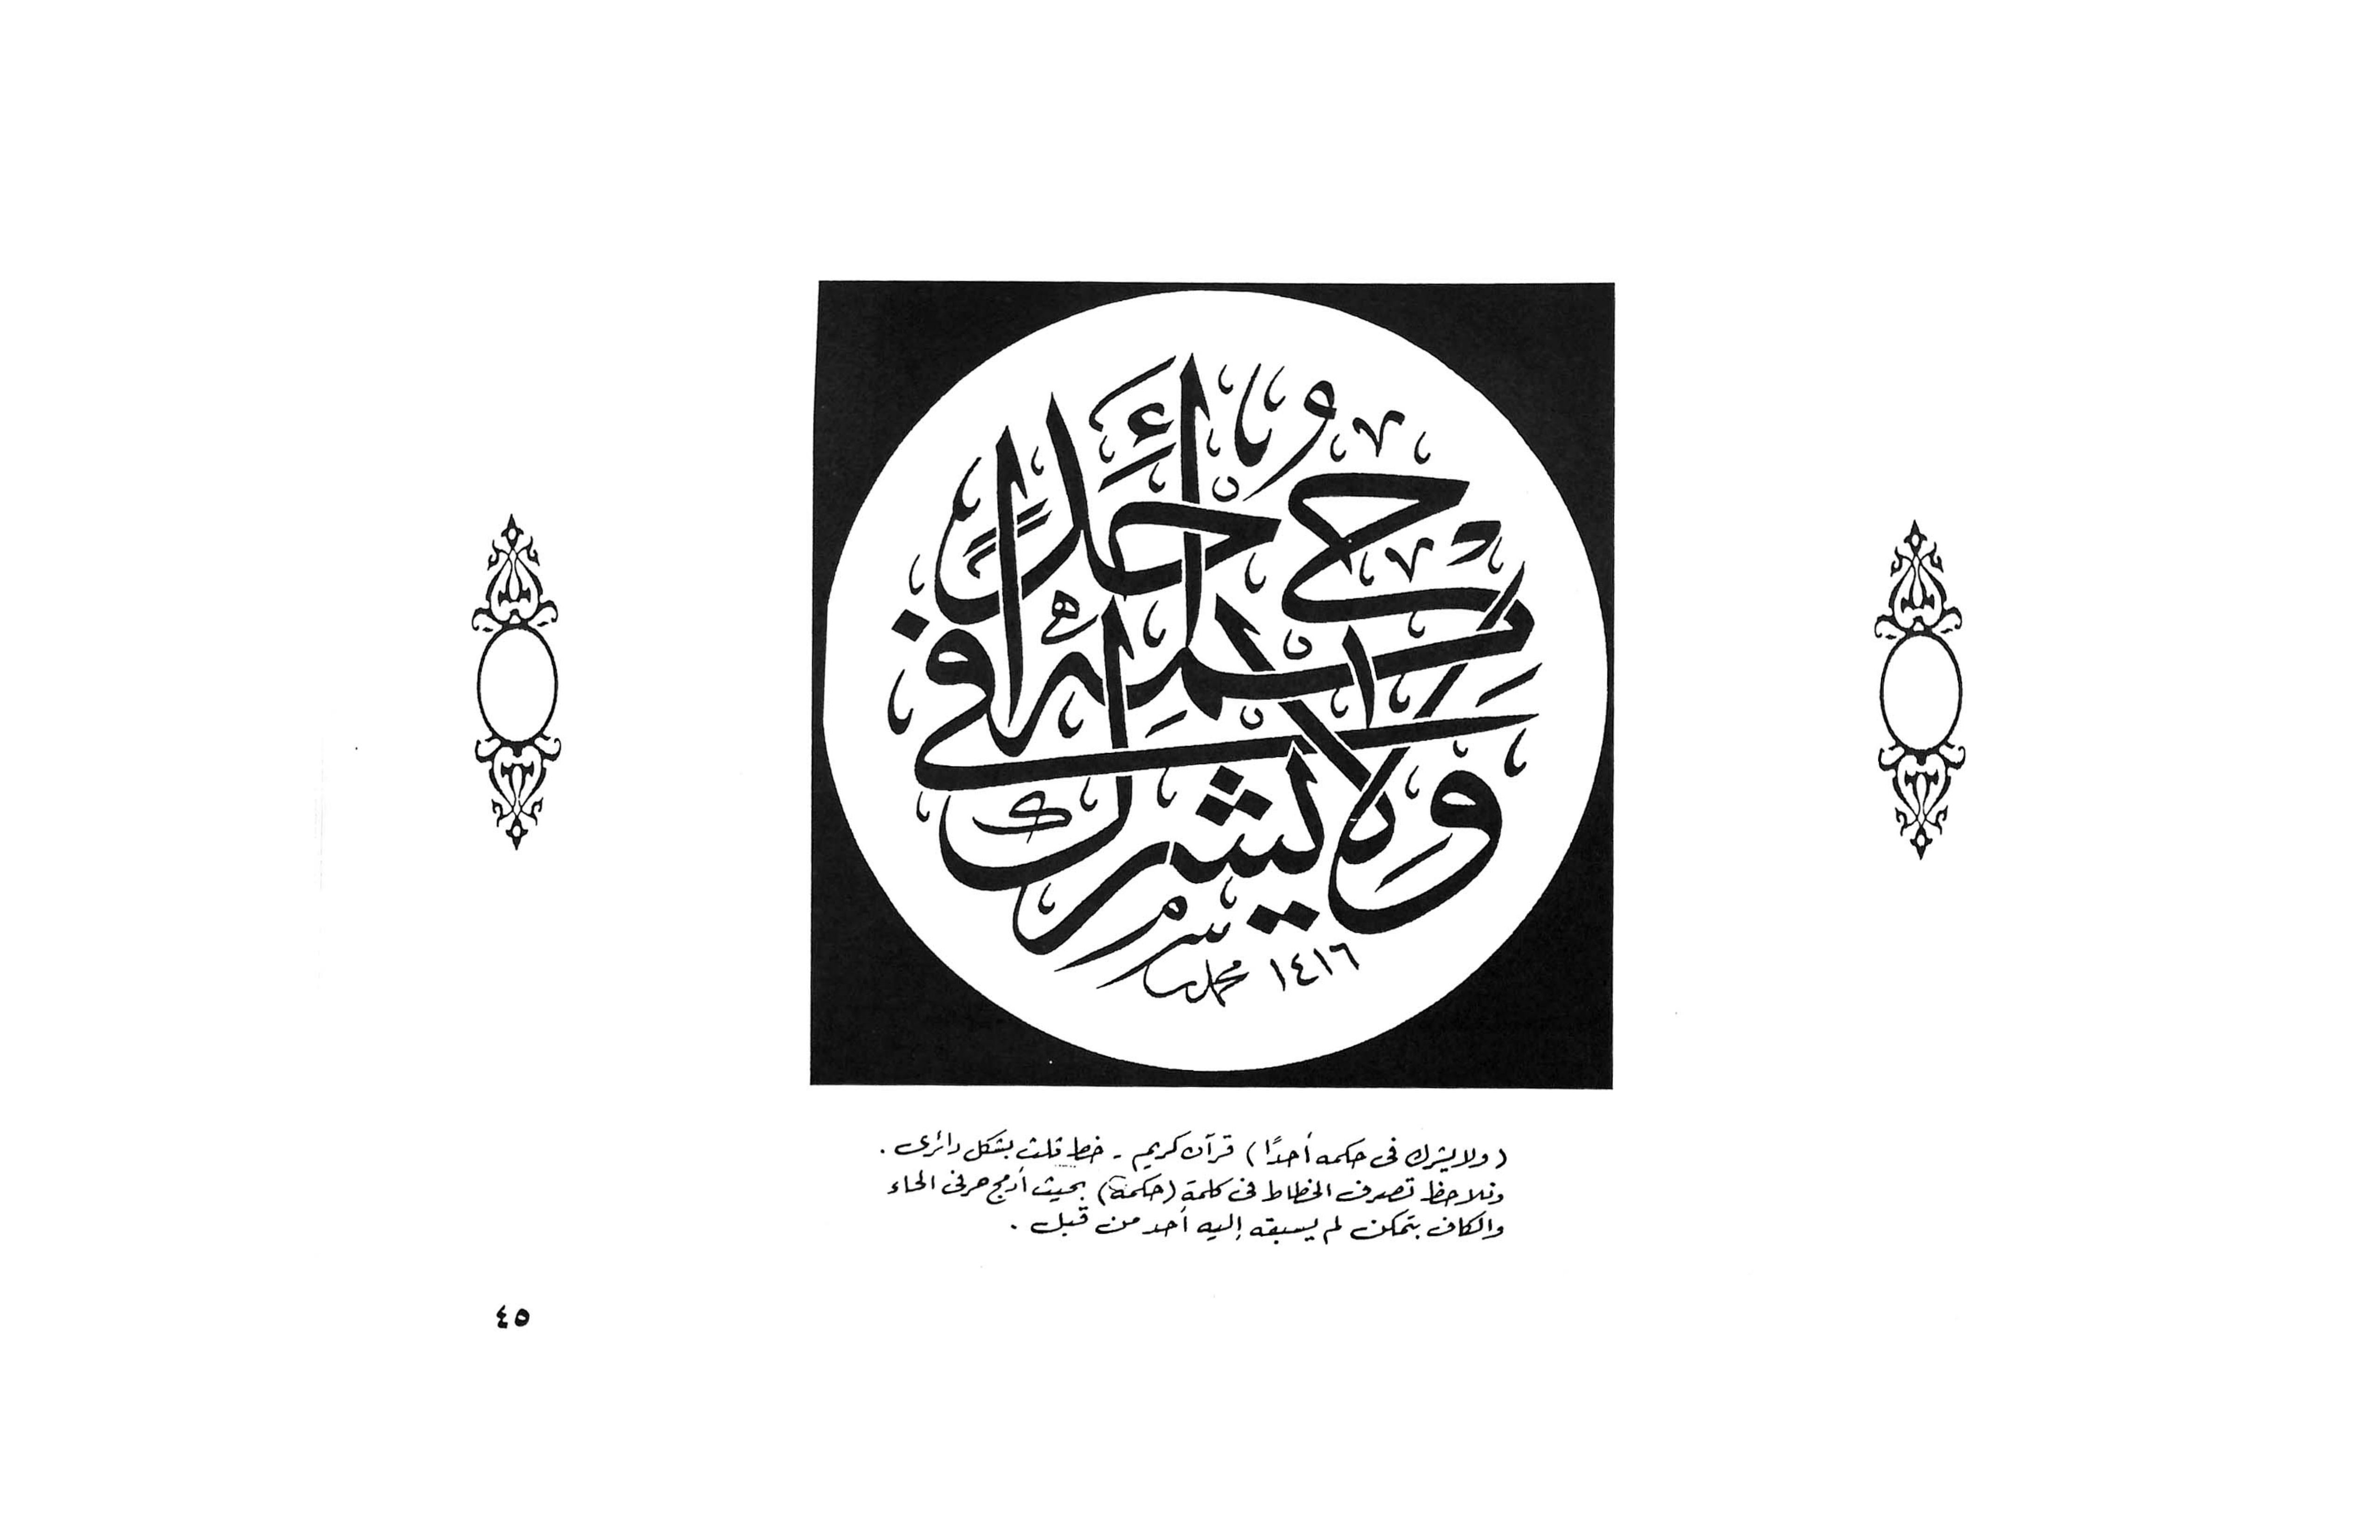 ولا يشرك في حكمه أحدًا
محمد
١٤١٦
(ولا يشرك فى حكمه أحدًا) قرآن كريم - خط ثلث بشكل دائرى .
ونلاحظ تصرف الخطاط فى كلمة (حكمه) بحيث أدمج حرفى الحاء
والكاف بتمكن لم يسبقه إليه أحد من قبل .
٤٥